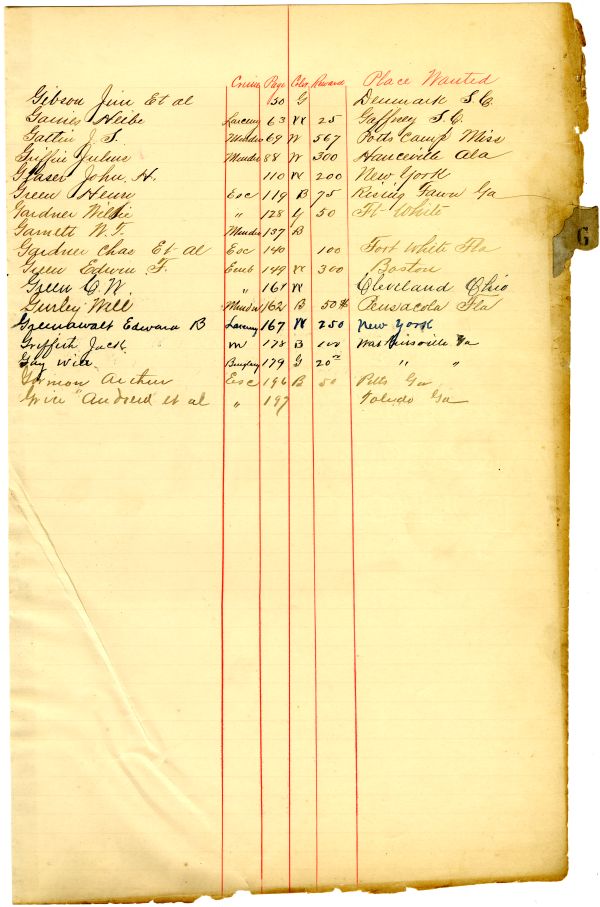 Crime Page Color Reward Place Wanted
Gibson Jim Et al 50 G Denmark S.C.
Gaines Heibe Larceny 63 W 25 Gaffney S.C.
Gattin J. S. Murder 69 W 567 Potts Camp Miss
Griffin Julius Murder 88 W 300 Hanceville Ala
Glaser John H. 110 W 200 New York
Green Henry Esc 119 B 75 Rising Fawn Ga
Gardner Willie " 128 G 50 Ft White
Garnett W. T. Murder 137 B
Gardner Chas Et al Esc 140 100 Fort White Fla
Green Edwin F. Emb 149 W 300 Boston
Green C. W. " 161 W Cleveland Ohio
Gurley Will Murder 162 B 50 Pensacola Fla
Greenawalt Edward B Larceny 167 W 250 New York
Griffith Jack M 178 B 100 Watkinsville Ga
Gay Will Burglary 179 G 20 " "
Gorman Arthur Esc 196 B 50 Pitts Ga
et al " 197 Toledo Ga
G